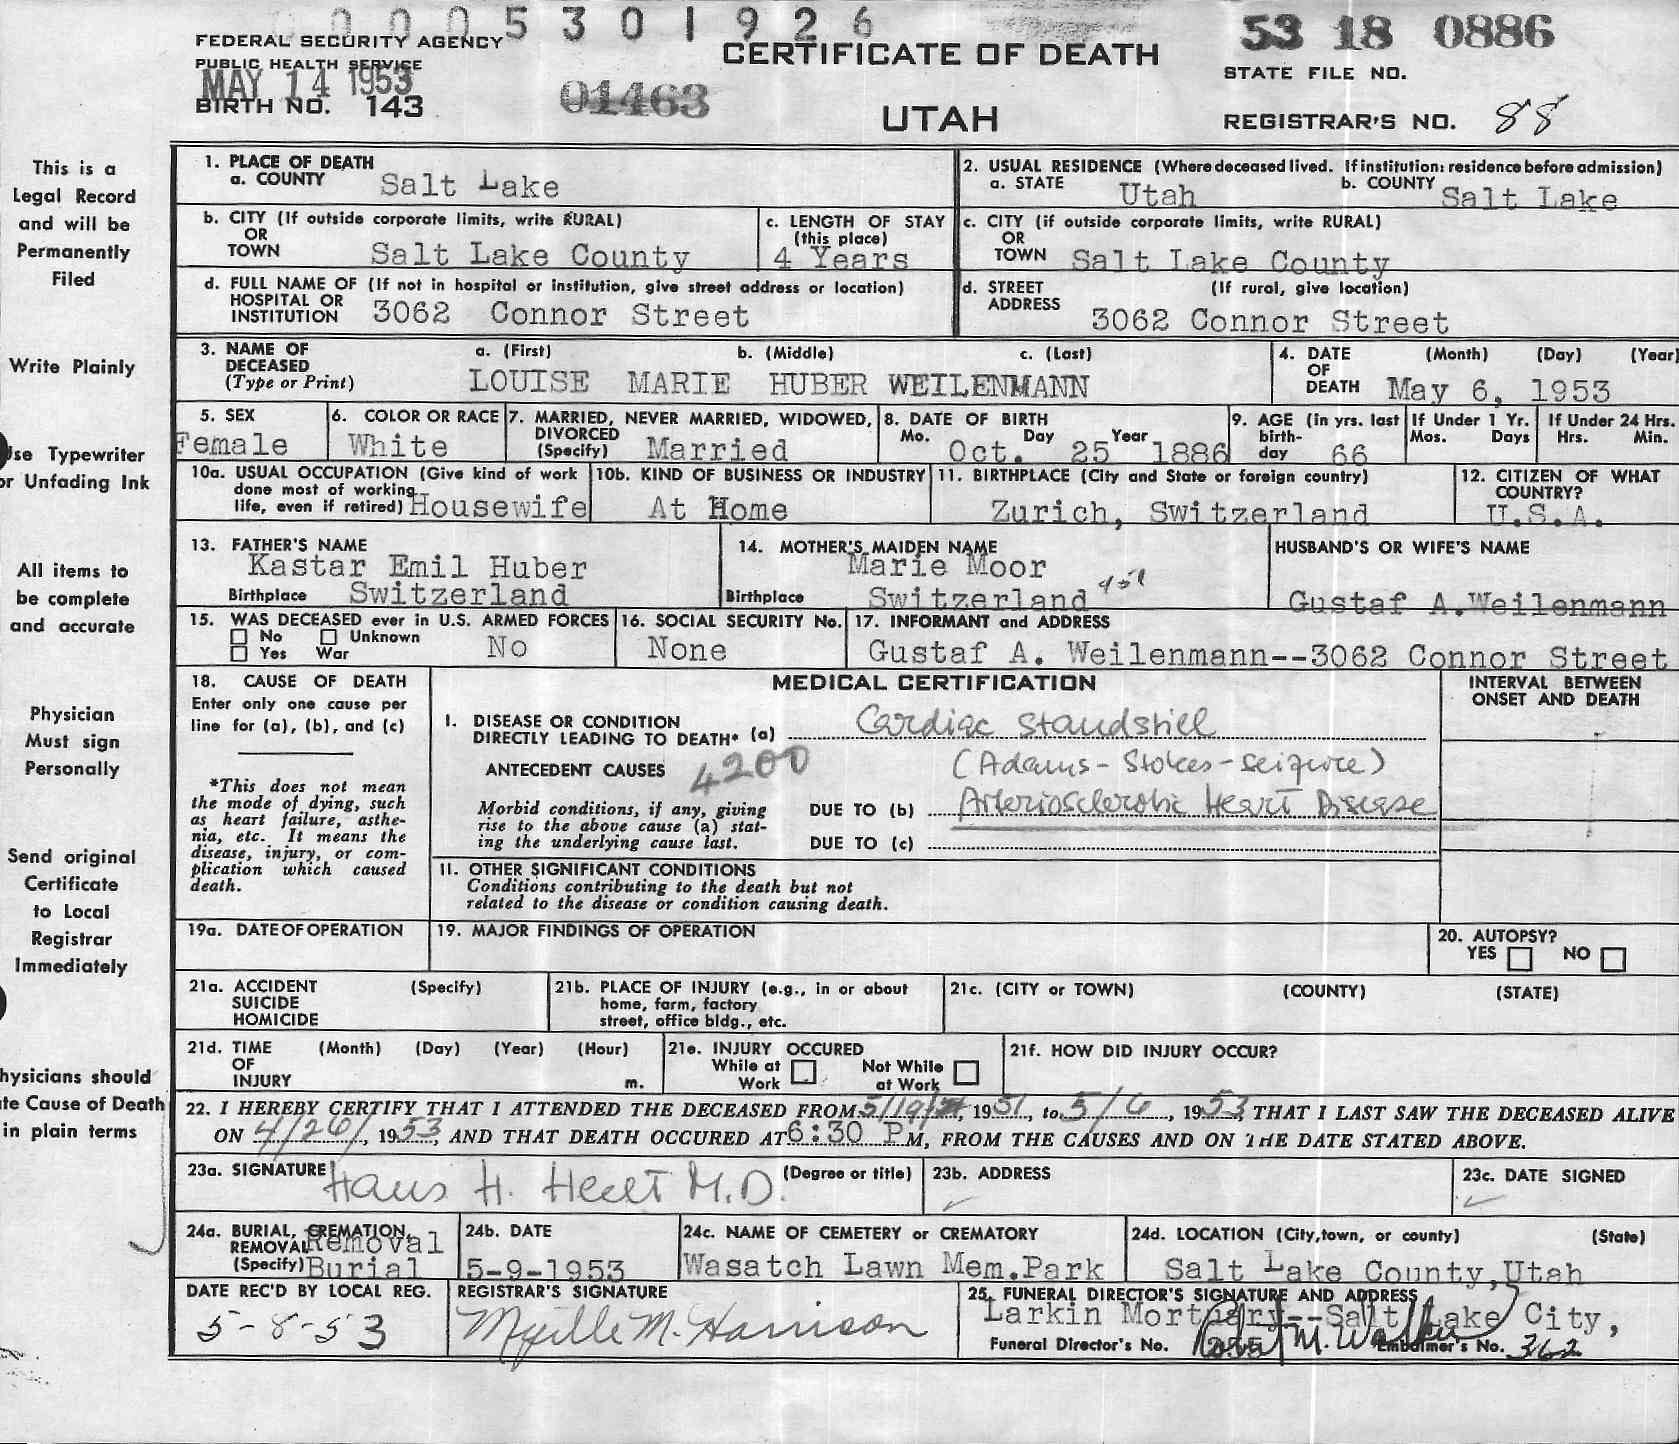 0005301926
FEDERAL SECURITY AGENCY
PUBLIC HEALTH SERVICE
MAY 14 1953
BIRTH NO. 143
01463
CERTIFICATE OF DEATH
UTAH
53 18 0886
STATE FILE NO.
REGISTRAR'S NO. 88
This is a
Legal Record
and will be
Permanently
Filed
Write Plainly
Use Typewriter
or Unfading Ink
All items to
be complete
and accurate
Physician
Must sign
Personally
Send original
Certificate
to Local
Registrar
Immediately
hysicians should
te Cause of Death
in plain terms
1. PLACE OF DEATH
a. COUNTY Salt Lake
2. USUAL RESIDENCE (Where deceased lived. If institution: residence before admission)
a. STATE Utah b. COUNTY Salt Lake
b. CITY (If outside corporate limits, write RURAL)
OR
TOWN Salt Lake County
c. LENGTH OF STAY
(this place)
4 Years
c. CITY (if outside corporate limits, write RURAL)
OR
TOWN Salt Lake County
d. FULL NAME OF (If not in hospital or institution, give street address or location)
HOSPITAL OR
INSTITUTION 3062 Connor Street
d. STREET (If rural, give location)
ADDRESS
3062 Connor Street
3. NAME OF a. (First) b. (Middle) c. (Last)
DECEASED
(Type or Print) LOUISE MARIE HUBER WEILENMANN
4. DATE (Month) (Day) (Year)
OF
DEATH May 6, 1953
5. SEX
Female
6. COLOR OR RACE
White
7. MARRIED, NEVER MARRIED, WIDOWED,
DIVORCED
(Specify) Married
8. DATE OF BIRTH
Mo. Day Year
Oct. 25 1886
9. AGE (in yrs. last
birth-
day 66
If Under 1 Yr.
Mos. Days
If Under 24 Hrs.
Hrs. Min.
10a. USUAL OCCUPATION (Give kind of work
done most of working
life, even if retired) Housewife
10b. KIND OF BUSINESS OR INDUSTRY
At Home
11. BIRTHPLACE (City and State or foreign country)
Zurich, Switzerland
12. CITIZEN OF WHAT
COUNTRY?
U.S.A.
13. FATHER'S NAME
Kastar Emil Huber
Birthplace Switzerland
14. MOTHER'S MAIDEN NAME
Marie Moor
Birthplace Switzerland
HUSBAND'S OR WIFE'S NAME
Gustaf A.Weilenmann
15. WAS DECEASED ever in U.S. ARMED FORCES
No Unknown
Yes War No
16. SOCIAL SECURITY No.
None
17. INFORMANT and ADDRESS
Gustaf A. Weilenmann--3062 Connor Street
18. CAUSE OF DEATH
Enter only one cause per
line for (a), (b), and (c)
*This does not mean
the mode of dying, such
as heart failure, asthe-
nia, etc. It means the
disease, injury, or com-
plication which caused
death.
MEDICAL CERTIFICATION
INTERVAL BETWEEN
ONSET AND DEATH
I. DISEASE OR CONDITION
DIRECTLY LEADING TO DEATH* (a) Cardiac Standstill
ANTECEDENT CAUSES 4200 (Adams-Stokes-seizure)
Morbid conditions, if any, giving
rise to the above cause (a) stat-
ing the underlying cause last.
DUE TO (b) Arteriosclerotic Heart Disease
DUE TO (c)
II. OTHER SIGNIFICANT CONDITIONS
Conditions contributing to the death but not
related to the disease or condition causing death.
19a. DATE OF OPERATION
19. MAJOR FINDINGS OF OPERATION
20. AUTOPSY?
YES NO
21a. ACCIDENT (Specify)
SUICIDE
HOMICIDE
21b. PLACE OF INJURY (e.g., in or about
home, farm, factory
street, office bldg., etc.
21c. (CITY or TOWN) (COUNTY) (STATE)
21d. TIME (Month) (Day) (Year) (Hour)
OF
INJURY m.
21e. INJURY OCCURED
While at Not While
Work at Work
21f. HOW DID INJURY OCCUR?
22. I HEREBY CERTIFY THAT I ATTENDED THE DECEASED FROM 5/19/, 1951, to 5/6, 1953, THAT I LAST SAW THE DECEASED ALIVE
ON 4/26/, 1953, AND THAT DEATH OCCURED AT 6:30 P.M, FROM THE CAUSES AND ON THE DATE STATED ABOVE.
23a. SIGNATURE Hans H. Hecht M.D. (Degree or title)
23b. ADDRESS
23c. DATE SIGNED
24a. BURIAL, CREMATION,
REMOVAL Removal
(Specify) Burial
24b. DATE
5-9-1953
24c. NAME OF CEMETERY or CREMATORY
Wasatch Lawn Mem.Park
24d. LOCATION (City,town, or county) (State)
Salt Lake County,Utah
DATE REC'D BY LOCAL REG.
5-8-53
REGISTRAR'S SIGNATURE
M. Harrison
25. FUNERAL DIRECTOR'S SIGNATURE AND ADDRESS
Larkin Mortuary--Salt Lake City,
Funeral Director's No. Embalmer's No. 362